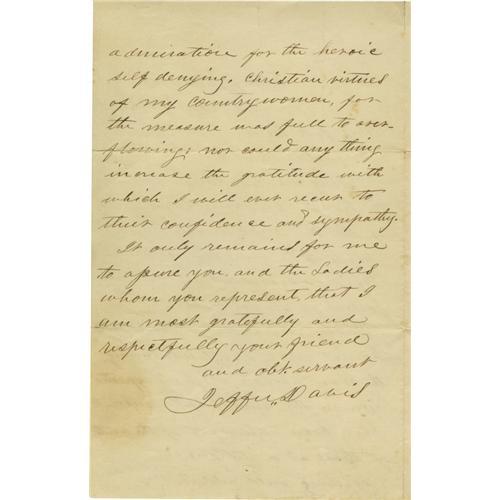 admiration for the heroic
self denying, Christian virtues
of my Countrywomen, for
the measure was full to over-
flowing; nor could any thing
increase the gratitude with
which I will ever recur to
their confidence and sympathy.
It only remains for me
to assure you, and the Ladies
whom you represent, that I
am most gratefully and
respectfully your friend
and obt. servant
Jeffn. Davis